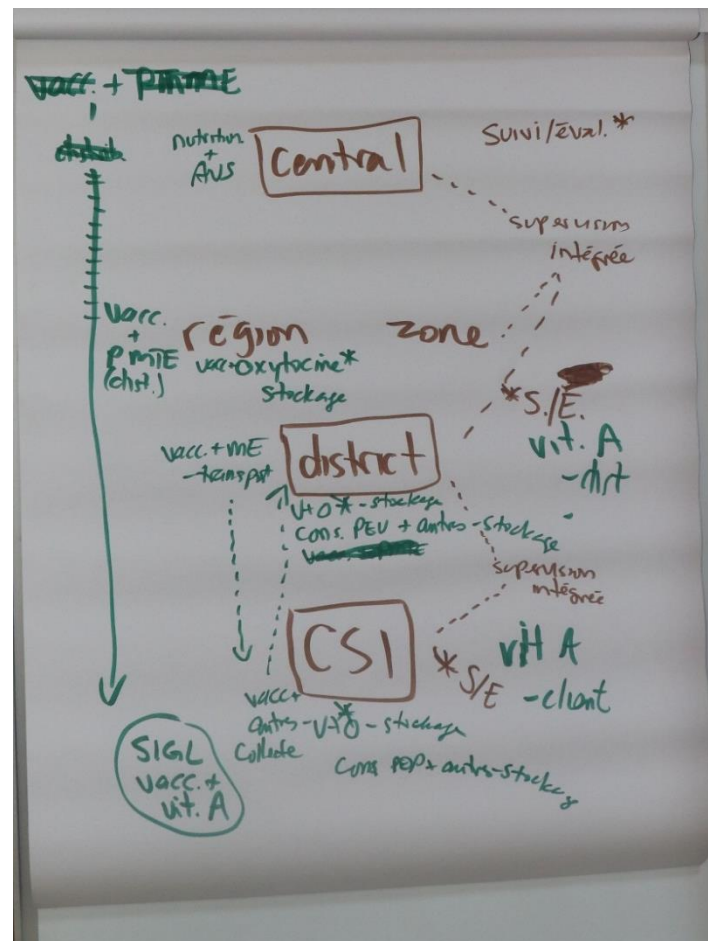 vacc. +
nutrition
+
ANS
central
Suivi/éval. *
supervision
intégrée
vacc.
+
PMTE
(dist.)
région
zone
vac+oxytocine*
stockage
*S./E.
vit. A
-dist
vacc. + ME
-transpt
district
V+O*-stockage
Cons. PEV + autres-stockage
supervision
intégrée
CSI
* S/E
vit A
-client
vacc+
autres-V+O*-stockage
Collecte
Cons PEP+autres-stockage
SIGL
vacc. +
vit. A